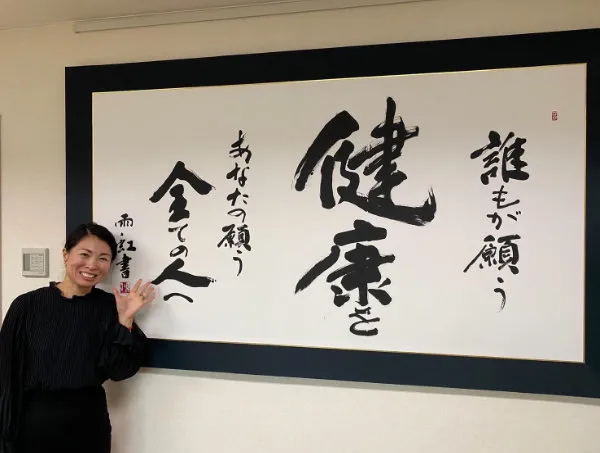 誰もが願う
健康を
あなたの願う
全ての人へ
雨紅書